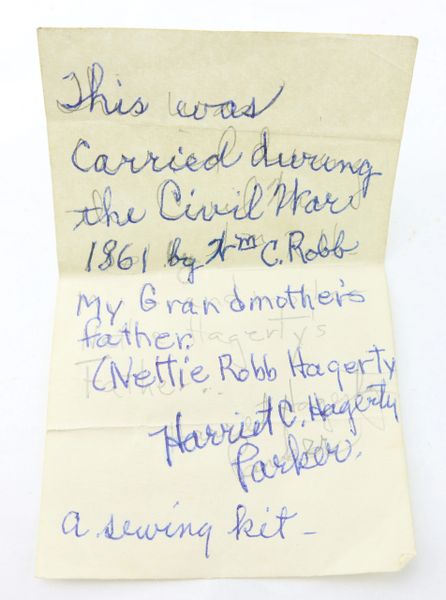 This was
Carried during
the Civil War
1861 by Wm C. Robb
My Grandmother's
father.
(Nettie Robb Hagerty
Harriet C. Hagerty
Parker.
a sewing kit -